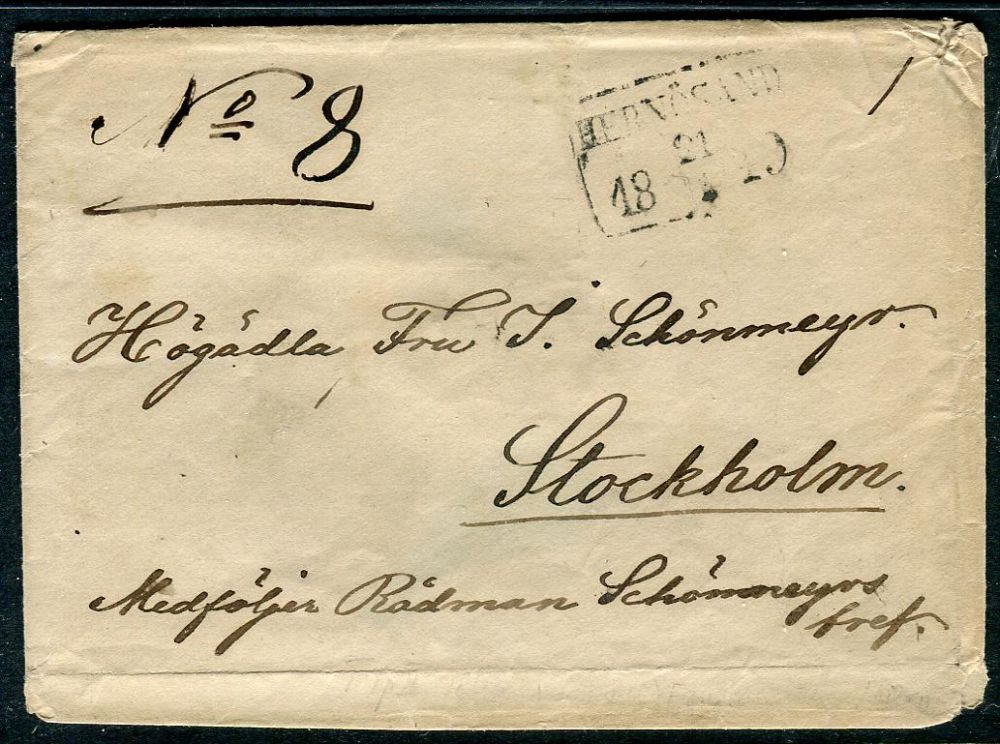 No 8
HERNÖSAND
21
18
Högädla Fru I. Schönmeyr.
Stockholm.
Medföljer Rådman Schönmeyrs
bref.